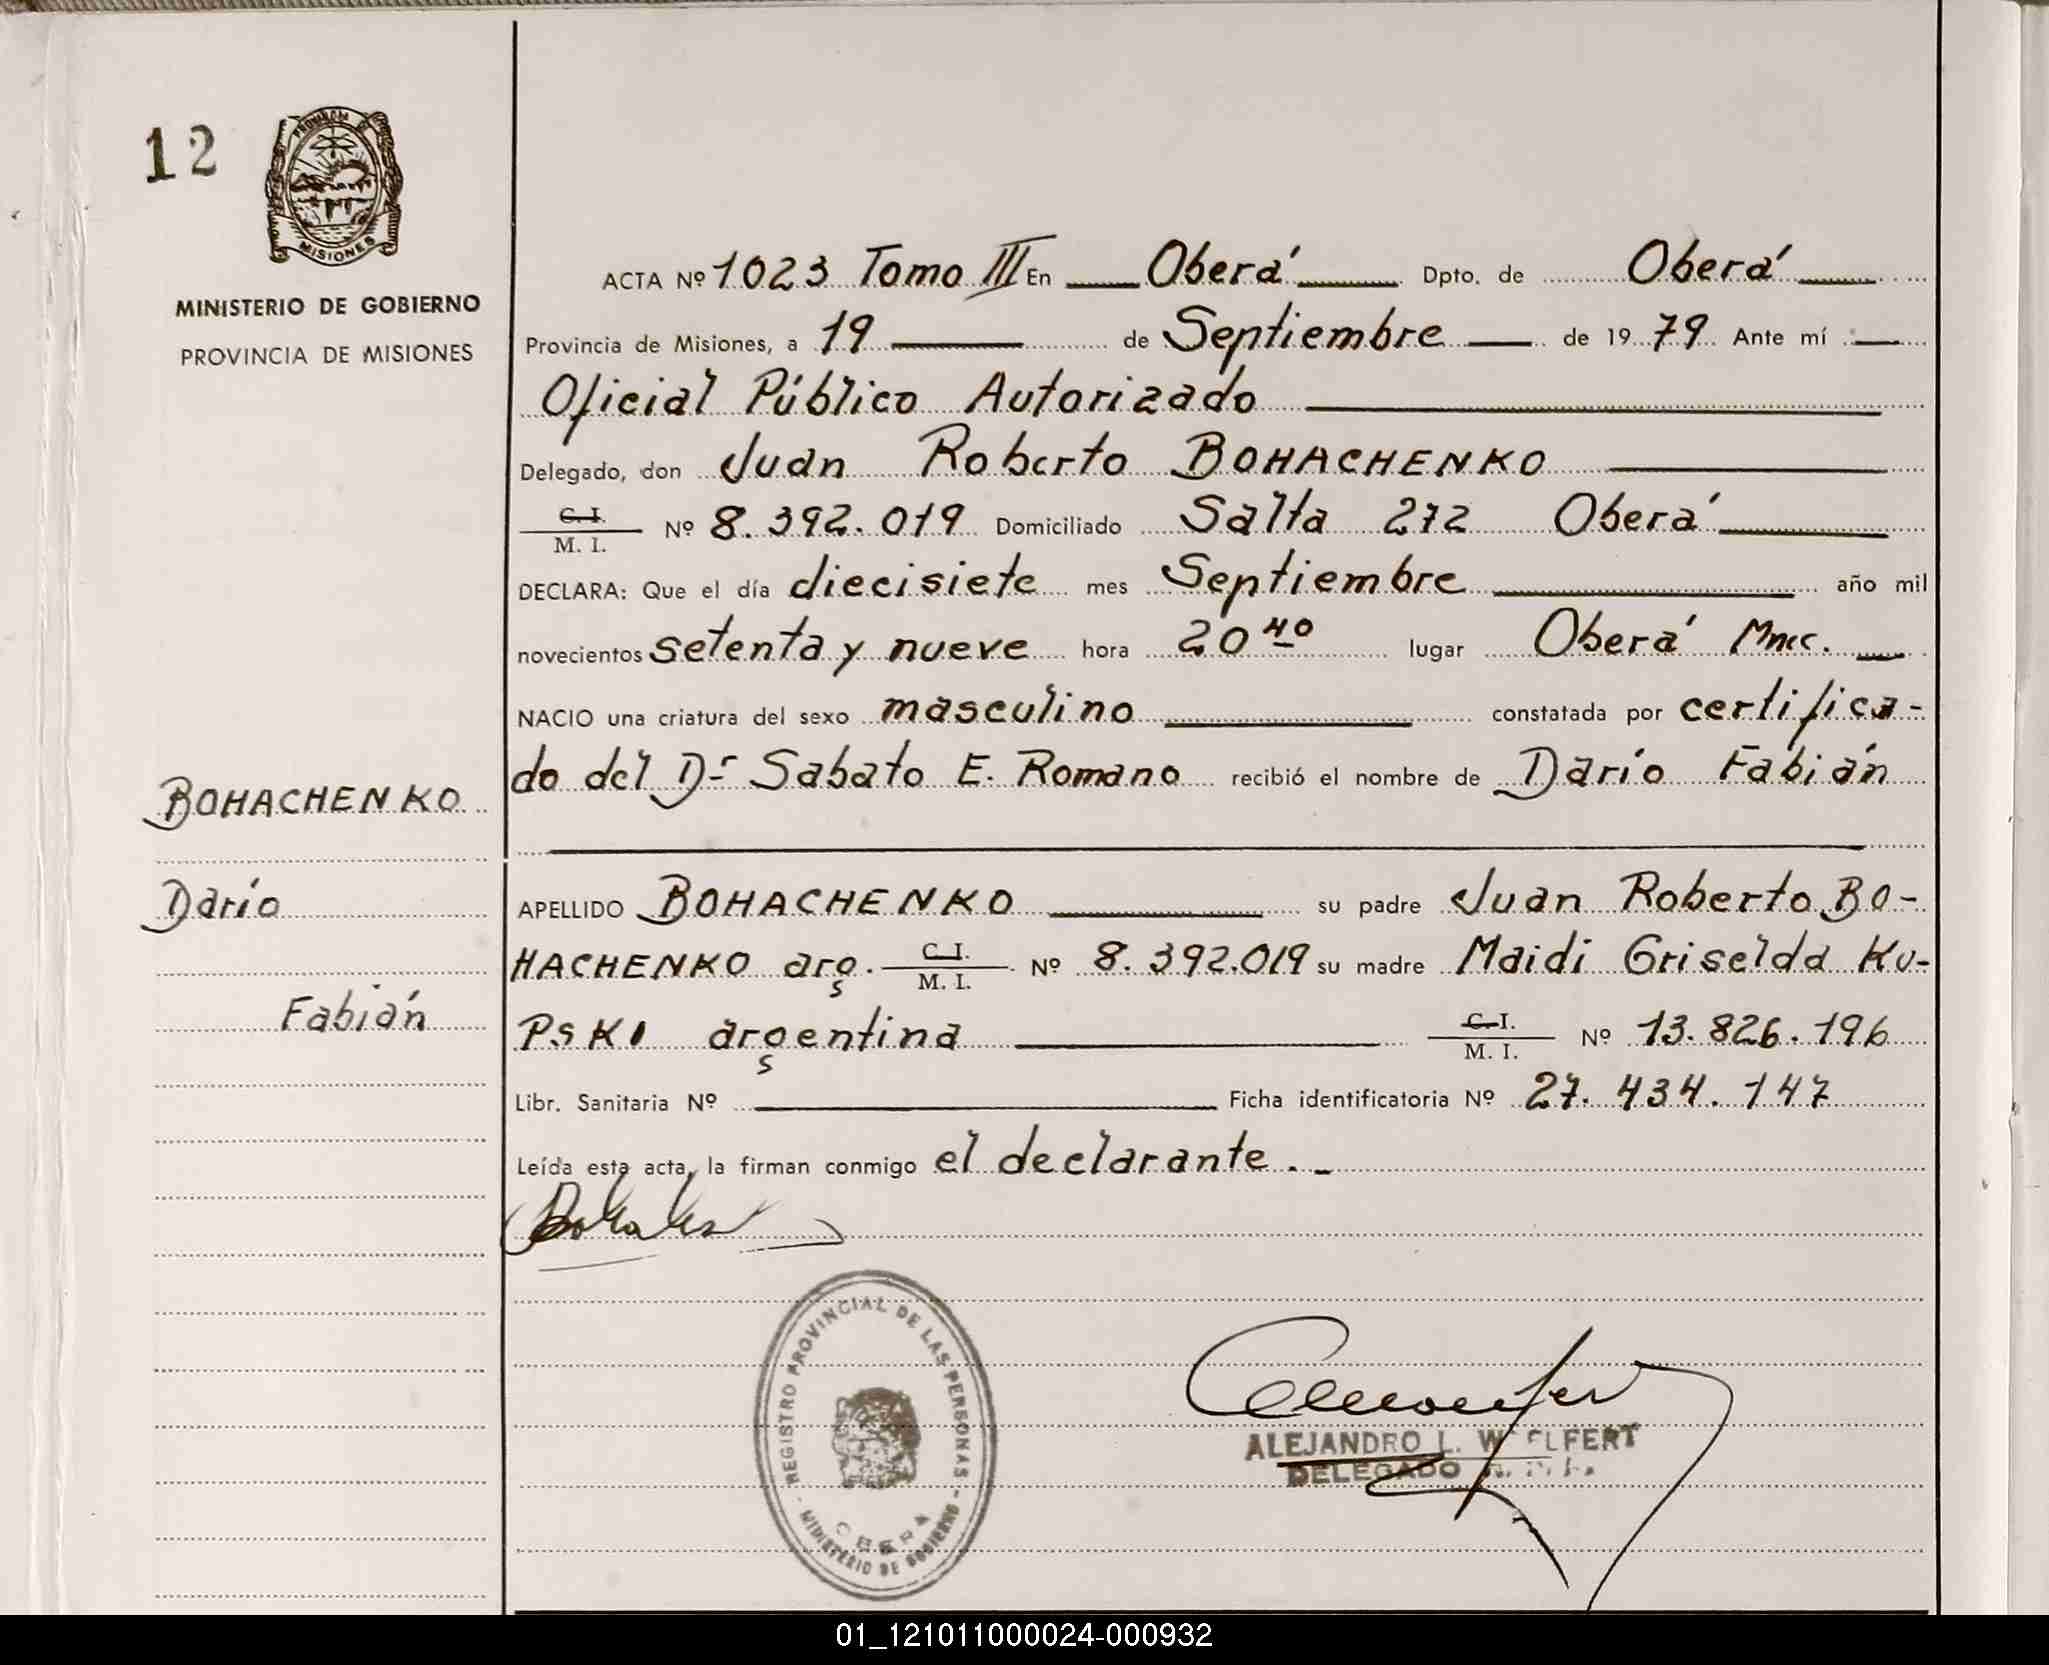 12
PROVINCIA DE
MISIONES
MINISTERIO DE GOBIERNO
PROVINCIA DE MISIONES
ACTA Nº 1023 Tomo III En Oberá Dpto. de Oberá
Provincia de Misiones, a 19 de Septiembre de 1979 Ante mí
Oficial Público Autorizado
Delegado, don Juan Roberto BOHACHENKO
C. I.
M. I. Nº 8.392.019 Domiciliado Salta 272 Oberá
DECLARA: Que el día diecisiete mes Septiembre año mil
novecientos setenta y nueve hora 20 40 lugar Oberá Mnes.
NACIO una criatura del sexo masculino constatada por certifica-
do del Dr Sabato E. Romano recibió el nombre de Darío Fabián
BOHACHENKO
Darío
Fabián
APELLIDO BOHACHENKO su padre Juan Roberto BO-
HACHENKO arg. C. I. M. I. Nº 8.392.019 su madre Maidi Griselda KU-
PSKI argentina C. I. M. I. Nº 13.826.196
Libr. Sanitaria Nº Ficha identificatoria Nº 27.434.147
Leída esta acta, la firman conmigo el declarante.
REGISTRO PROVINCIAL DE LAS PERSONAS
OBERA
MINISTERIO DE GOBIERNO
ALEJANDRO L.
DELEGADO
01_121011000024-000932